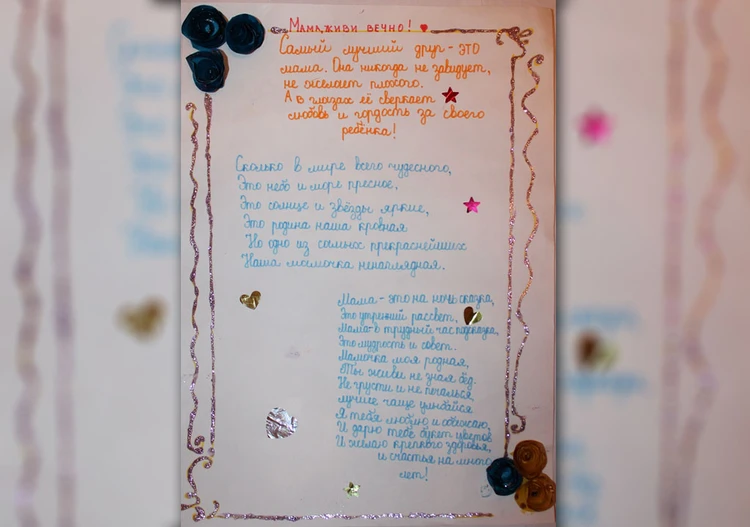 Мама, живи вечно!
Самый лучший друг - это
мама. Она никогда не завидует,
не желает плохого.
А в глазах её сверкает
любовь и гордость за своего
ребёнка!
Сколько в мире всего чудесного,
Это небо и море пресное,
Это солнце и звёзды яркие,
Это родина наша кровная
Но одно из самых прекраснейших
Наша мамочка ненаглядная.
Мама - это на ночь сказка,
Это утренний рассвет,
Мама - в трудный час подсказка,
Это мудрость и совет.
Мамочка моя родная,
Ты живи не зная бед.
Не грусти и не печалься,
лучше чаще улыбайся
Я тебя люблю и обожаю,
И дарю тебе букет цветов
И желаю крепкого здоровья,
и счастья на много
лет!